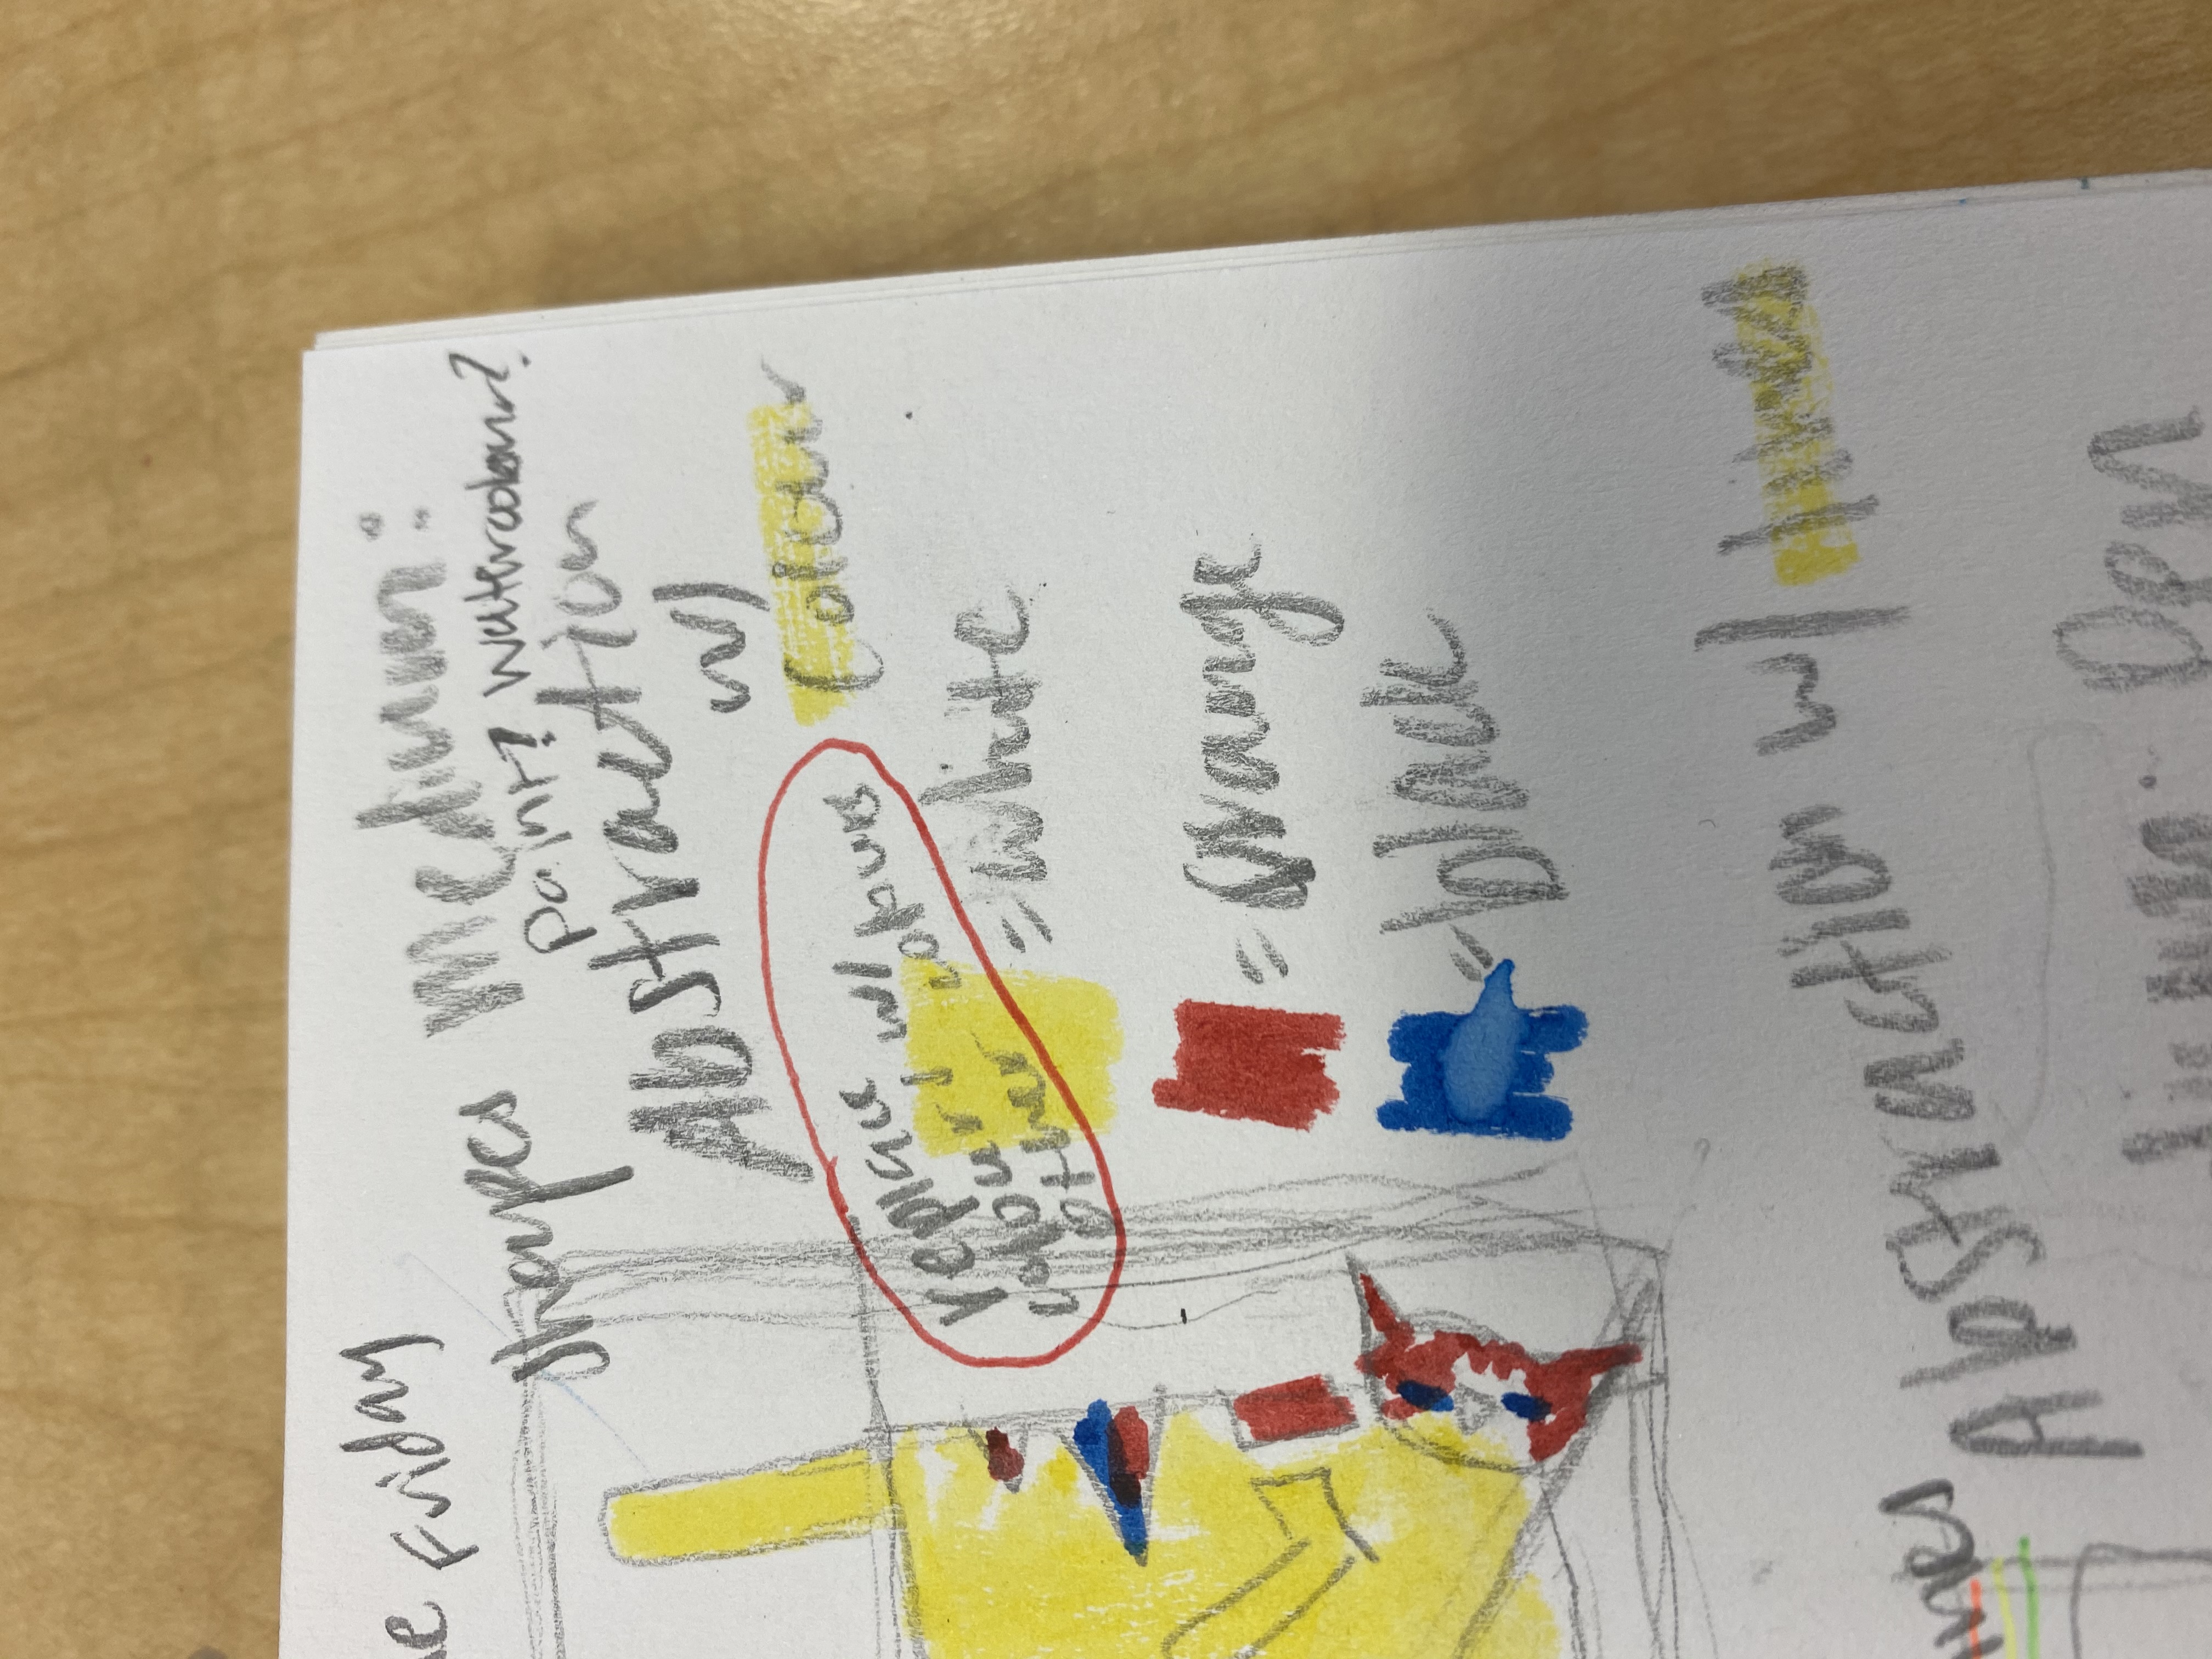 Friday
Shapes Medium:
Paint? Watercolour?
Abstraction
w/
Colour
replace
colours w/
other colours
= white
= Orange
= black
Abstraction w/ lines
: Pen